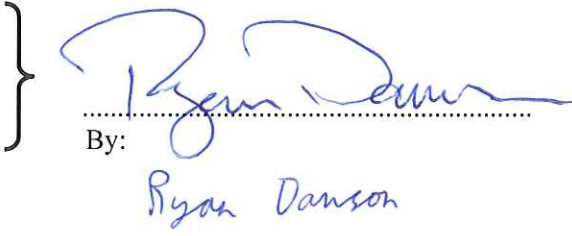 Ryan Dawson
By:
Ryan Dawson